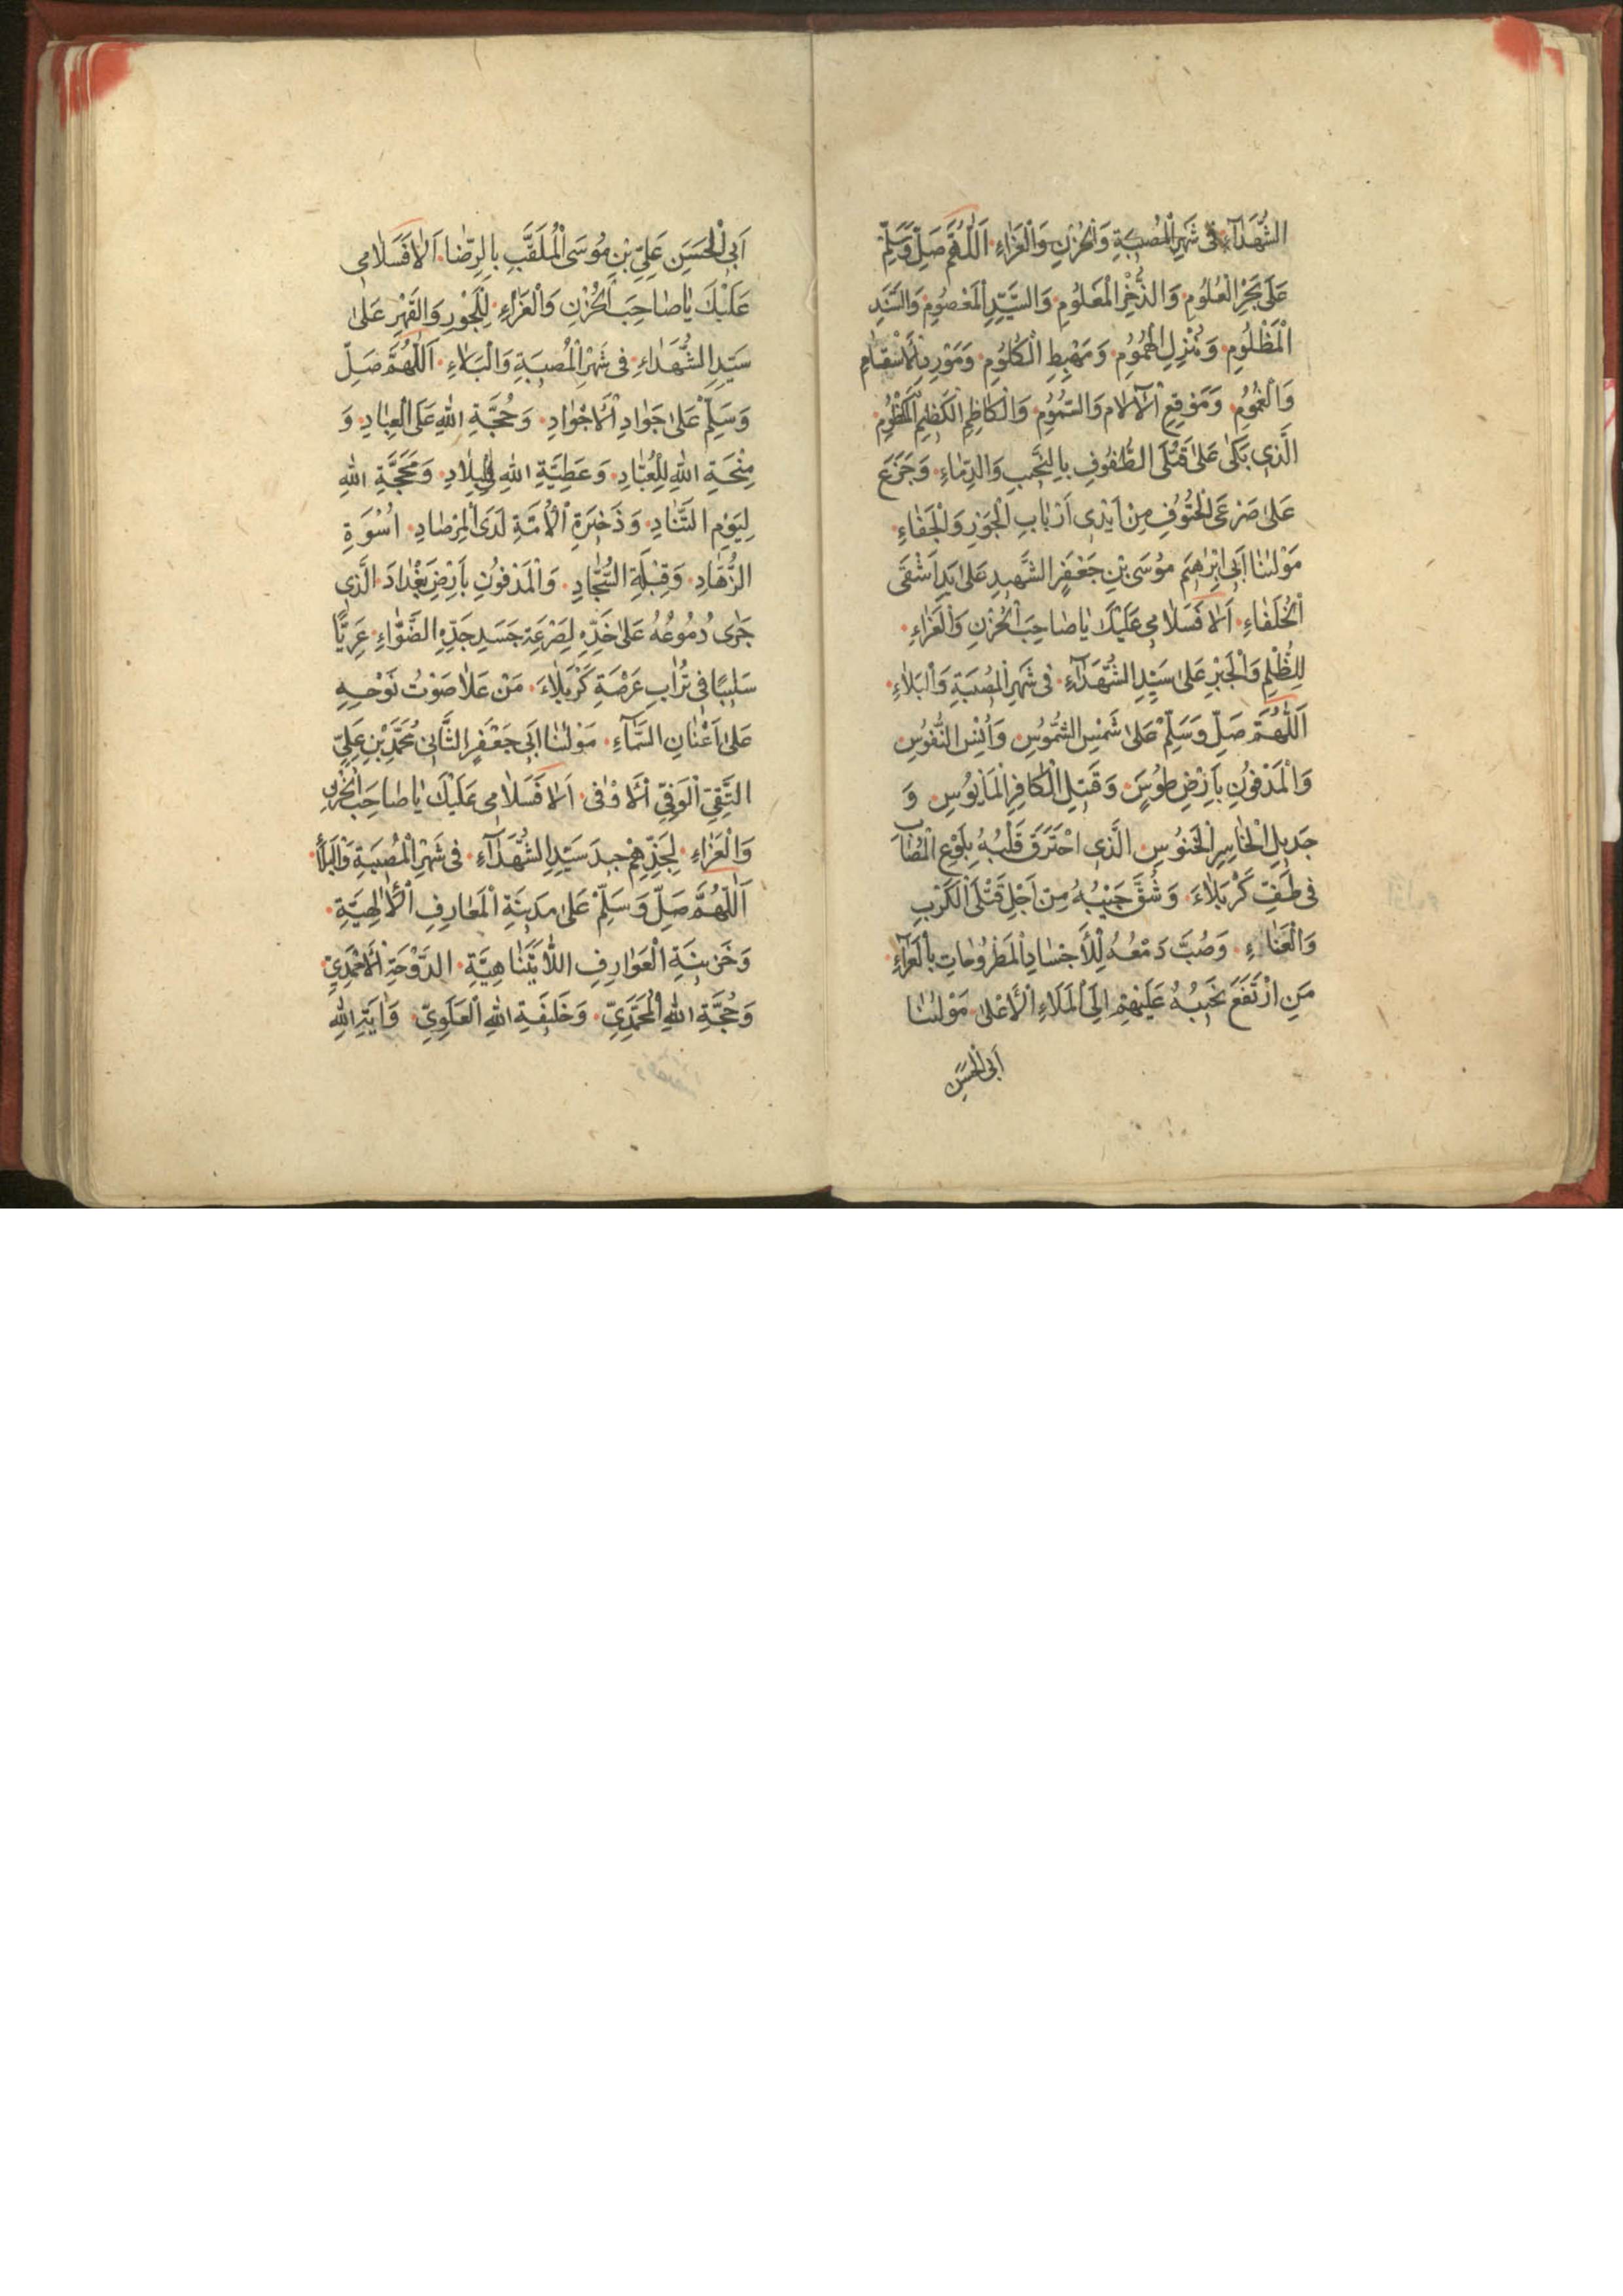 الشُّهَدَآءِ فى شَهْرِ الْمُصيبَةِ وَالْحُزْنِ وَالْعَزٰاءِ اَللّٰهُمَّ صَلِّ وَسَلِّمْ
عَلىٰ بَحْرِ الْعُلُومِ وَالذُّخْرِ الْمَعْلُومِ وَالسَّيِّدِ الْمَعْصُومِ وَالسَّنَدِ
الْمَظْلُومِ وَمُنْزِلِ الْهُمُومِ وَمَهْبِطِ الْكُلُومِ وَمَوْرِدِ الْاَسْقٰامِ
وَالْغُمُومِ وَمَوْقِعِ الْآلٰامِ وَالسُّمُومِ وَالْكٰاظِمِ الْكَظيمِ الْكَظُومِ
الَّذى بَكىٰ عَلىٰ قَتْلَى الطُّفُوفِ بِالنَّحيبِ وَالدِّمٰاءِ وَجَزَعَ
عَلىٰ صَرْعَى الْحُتُوفِ مِنْ اَيْدى اَرْبٰابِ الْجَوْرِ وَالْجَفٰاءِ
مَوْلٰينٰا اَبى اِبْرٰهيمَ مُوسَى بْنِ جَعْفَرٍ الشَّهيدِ عَلىٰ يَدِ اَشْقَى
الْخُلَفٰاءِ اَلٰا فَسَلٰامى عَلَيْكَ يٰا صٰاحِبَ الْحُزْنِ وَالْعَزٰاءِ
لِلظُّلْمِ وَالْجَبْرِ عَلىٰ سَيِّدِ الشُّهَدَآءِ فى شَهْرِ الْمُصيبَةِ وَالْبَلٰاءِ
اَللّٰهُمَّ صَلِّ وَسَلِّمْ عَلىٰ شَمْسِ الشُّمُوسِ وَاَنيسِ النُّفُوسِ
وَالْمَدْفُونِ بِاَرْضِ طُوسٍ وَقَتيلِ الْكٰافِرِ الْمَاْيُوسِ وَ
جَديلِ الْخٰاسِرِ الْخَنُوسِ الَّذى احْتَرَقَ قَلْبُهُ بِلَوْعِ الْمُصٰابِ
فى طَفِّ كَرْبَلٰاءَ وَشُقَّ جَيْبُهُ مِنْ اَجْلِ قَتْلَى الْكَرْبِ
وَالْعَنٰاءِ وَصُبَّ دَمْعُهُ لِلْاَجْسٰادِ الْمَطْرُوحٰاتِ بِالْعَرٰآءِ
مَنِ ارْتَفَعَ نَحيبُهُ عَلَيْهِمْ اِلَى الْمَلَاءِ الْاَعْلىٰ مَوْلٰينٰا
اَبى الْحَسَنِ
اَبى الْحَسَنِ عَلِيِّ بْنِ مُوسَى الْمُلَقَّبِ بِالرِّضٰا اَلٰا فَسَلٰامى
عَلَيْكَ يٰا صٰاحِبَ الْحُزْنِ وَالْعَزٰاءِ لِلْجَوْرِ وَالْقَهْرِ عَلىٰ
سَيِّدِ الشُّهَدٰاءِ فى شَهْرِ الْمُصيبَةِ وَالْبَلٰاءِ اَللّٰهُمَّ صَلِّ
وَسَلِّمْ عَلىٰ جَوٰادِ الْاَجْوٰادِ وَحُجَّةِ اللهِ عَلَى الْعِبٰادِ وَ
مِنْحَةِ اللهِ لِلْعُبّٰادِ وَعَطِيَّةِ اللهِ فى الْبِلٰادِ وَمَحَجَّةِ اللهِ
لِيَوْمِ التَّنٰادِ وَذَخيرَةِ الْاُمَّةِ لَدَى الْمِرْصٰادِ اُسْوَةِ
الزُّهّٰادِ وَقِبْلَةِ السُّجّٰادِ وَالْمَدْفُونِ بِاَرْضِ بَغْدٰادَ الَّذى
جَرىٰ دُمُوعُهُ عَلىٰ خَدِّهِ لِصَرْعَةِ جَسَدِ جَدِّهِ الضَّوّٰاءِ عَرِيًّا
سَليبًا فى تُرٰابِ عَرْصَةِ كَرْبَلٰاءَ مَنْ عَلٰا صَوْتُ نَوْحِهِ
عَلىٰ اَعْنٰانِ السَّمٰآءِ مَوْلٰينٰا اَبى جَعْفَرٍ الثَّانى مُحَمَّدِ بْنِ عَلِيٍّ
التَّقِيِّ الْوَفِيِّ الْاَوْفىٰ اَلٰا فَسَلٰامى عَلَيْكَ يٰا صٰاحِبَ الْحُزْنِ
وَالْعَزٰاءِ لِجَدِّهِمْ جيدَ سَيِّدِ الشُّهَدَآءِ فى شَهْرِ الْمُصيبَةِ وَالْبَلٰاءِ
اَللّٰهُمَّ صَلِّ وَسَلِّمْ عَلىٰ مَدينَةِ الْمَعٰارِفِ الْاِلٰهِيَّةِ
وَخَزينَةِ الْعَوٰارِفِ اللّٰايَتَنٰاهِيَّةِ الدَّوْحَةِ الْاَحْمَدِيِّ
وَحُجَّةِ اللهِ الْمُحَمَّدِيِّ وَخَليفَةِ اللهِ الْعَلَوِيِّ وَاٰيَةِ اللهِ